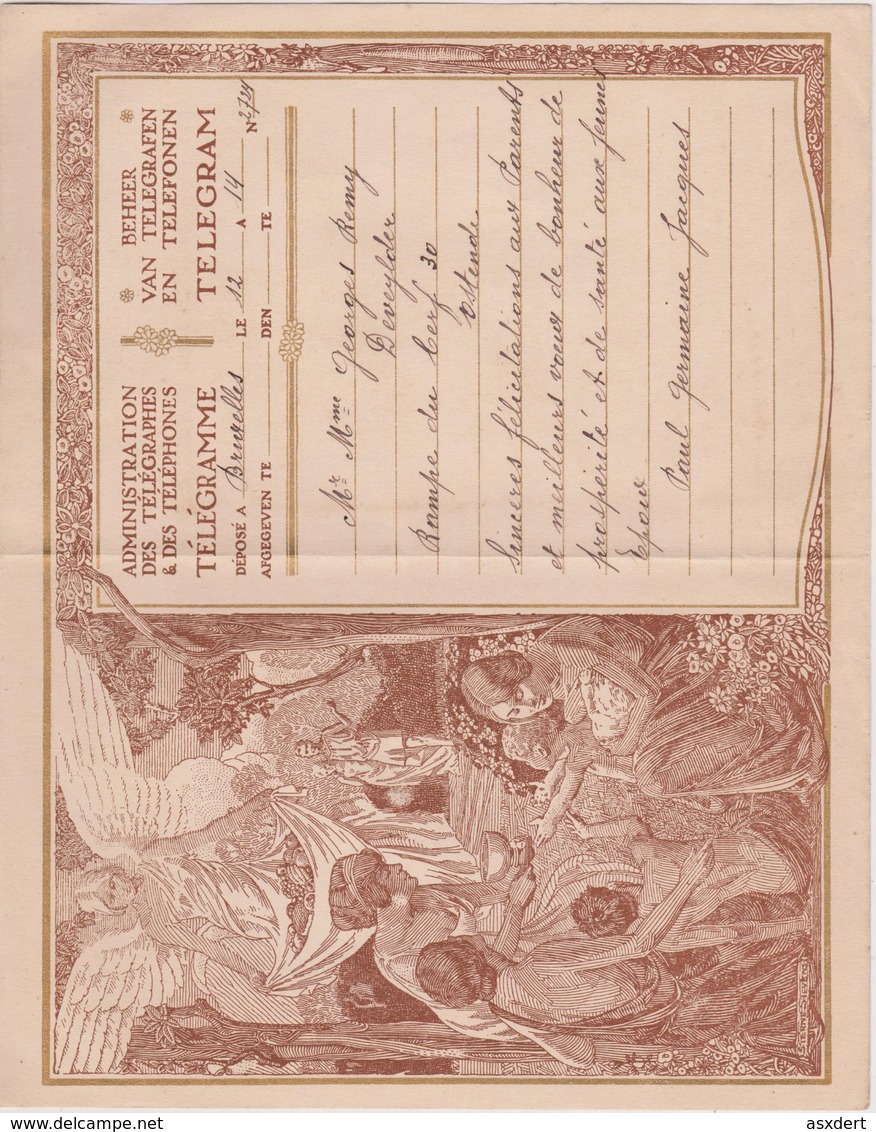 ADMINISTRATION
DES TÉLÉGRAPHES
& DES TÉLÉPHONES
TÉLÉGRAMME
BEHEER
VAN TELEGRAFEN
EN TELEFONEN
TELEGRAM
DÉPOSÉ A Bruxelles LE 12 A 14 N° 2724
AFGEGEVEN TE DEN TE
Mr Mme Georges Remy
Deveylder
Rampe du Cerf 30
Ostende
Sincères félicitations aux Parents
et meilleurs vœux de bonheur de
prosperité et de santé aux jeunes
Epoux
Paul Germaine Jacques
http://www.delcampe.net
asxdert